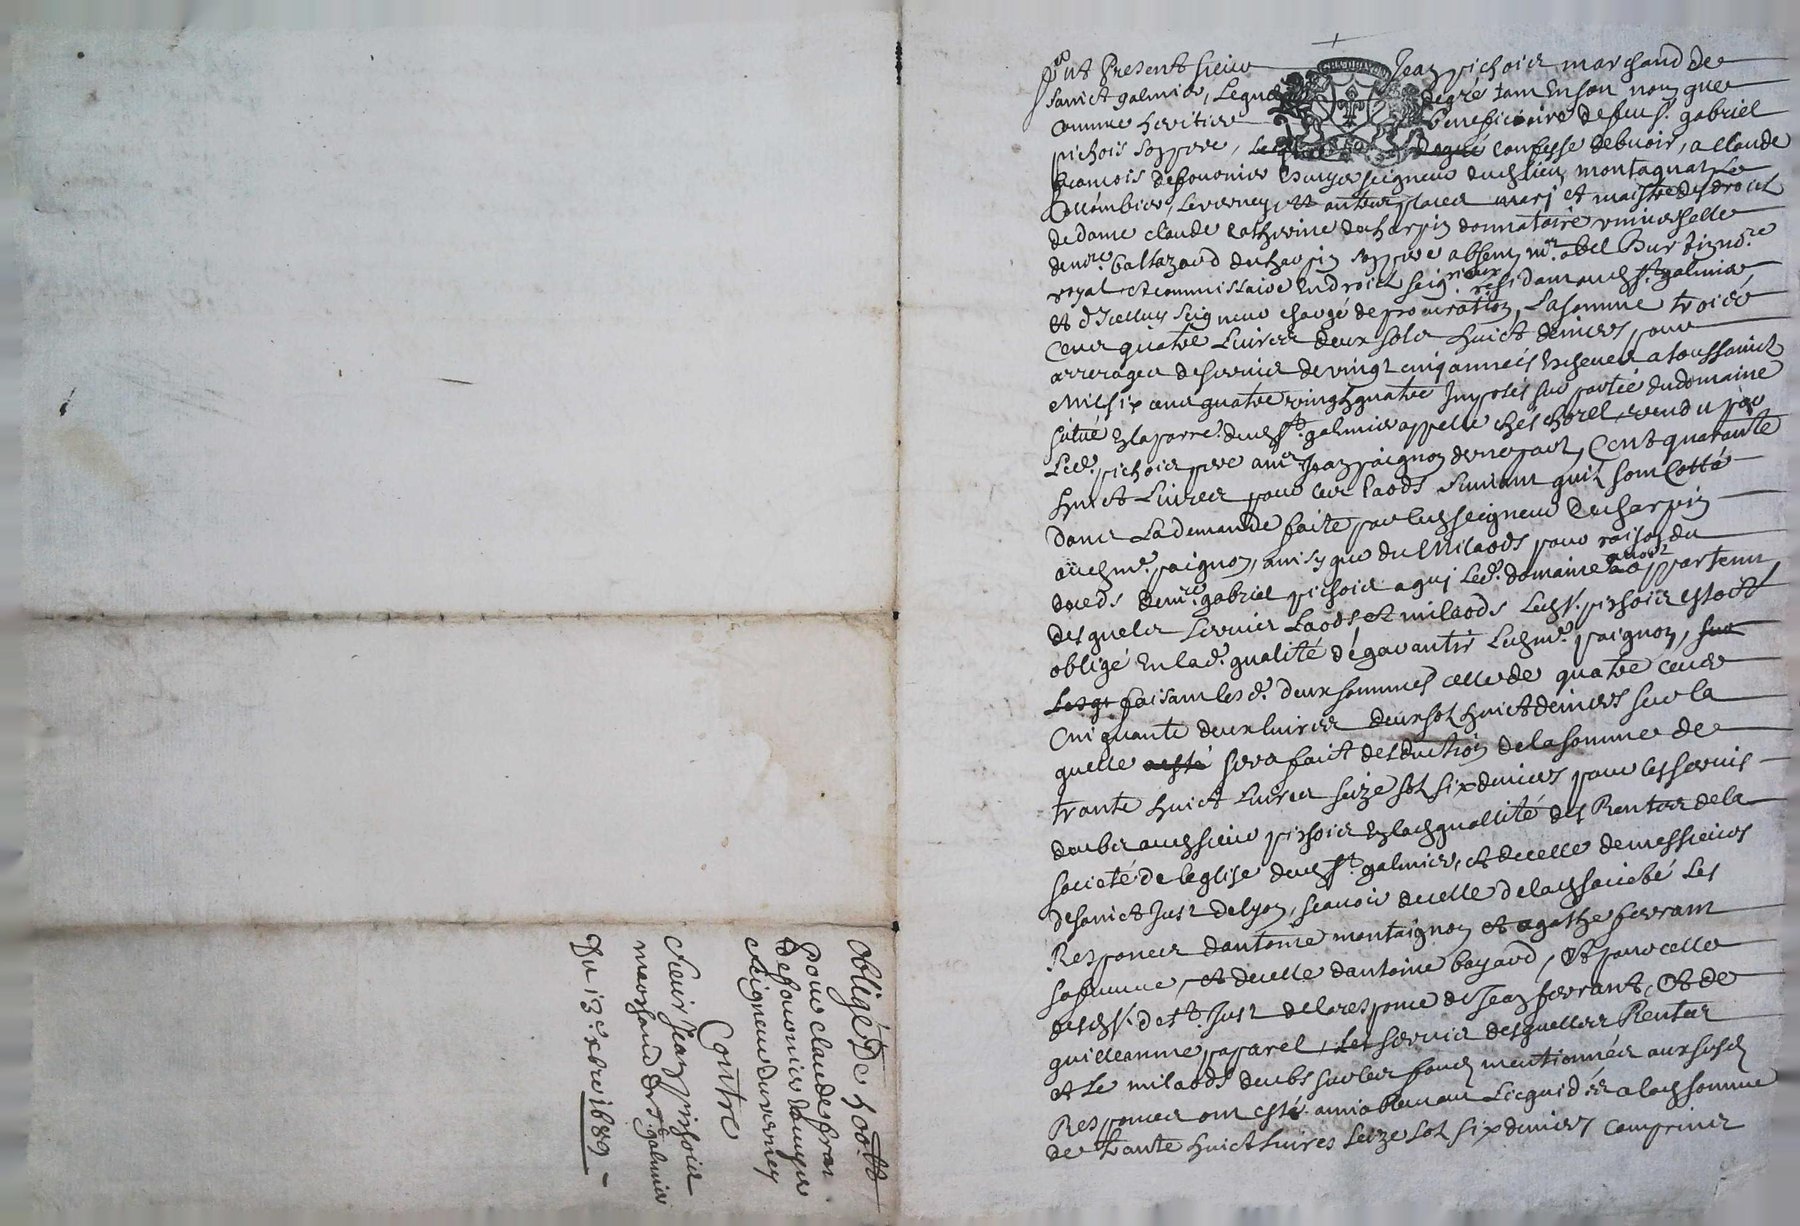 Fut Present sieur Jean pichois marchand de
sainct galmier, Lequel degré tant en son nom que
comme heritier beneficiaire de feu sr. gabriel
pichois son pere, confesse debvoir, a Claude
francois de fouvonier Escuyer seigneur dud lieu, montagnat Le
Collombier, Leverney et autres places mary et maistre des droicts
de dame claude catherine ducharpin donnataire universelle
de mre. baltazard ducharpin son pere absent, mr. abel Burdin no.re
royal et commissaire en droict seig.riaux residant aud st galmier,
et d'Icelluy seigneur chargé de procuration, La somme trois
Cens quatre Livres deux sols huict deniers, pour
arrerages de servis de vingt cinq années Escheues a toussainct
Mil six cens quatre vingts quatre Imposés sur partie du domaine
situé En la parre. dud st. galmier appellé ches chorel, vendu par
Led. pichois pere a mr. Jean paignon d'une part, Cent quarante
huict Livres pour les laods suivant quils sont Cotté
dans La demande faite par led seigneur ducharpin
aud mr. paignon, ainsy que du Milaods pour raison du
deceds de mre. gabriel pichois a quj Led. domaine avoit appartenu
desquels servis Laods et milaods Led sr. pichois estoit
obligé En lad. qualité de garantir Led mr. paignon, sur
Lesqs faisant lesd. deux sommes celle de quatre cens
Cinquante deux livres deux sols huict deniers sur la
quelle sera fait desduction de la somme de
trante huict Livres seize sols six deniers pour les servis
deubs aud sieur pichois En lad quallité des Rentes de la
societé de leglise dud st. galmier, et de celle de messieurs
de sainct Just de Lyon, scavoir de celle de lad societé Les
Responces dantoine montaignon et agathe ferrant
sa femme, et de celle dantoine bayard, Et pour celle
desd srs. de st. Just de la responce de Jean ferrant, Et de
guilleaume paparel, Les servis desquelles Rentes
et Le milaods deubs sur les fonds mentionnés aux susd
Responces ont esté amiablement Liquidés a lad somme
de trante huict Livres seize sols six deniers comprins
obligé De 400tt
Pour claude fran.
de fouvonier Escuyer
seigneur du verney
Contre
sieur Jean pichois
marchand de st. galmier
Du 13e. xbre 1689